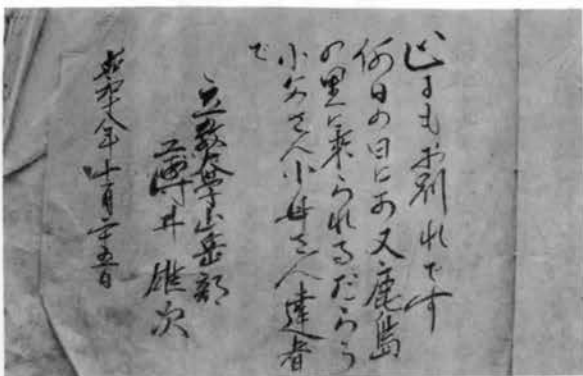 山ともお別れです
何日の日にか又鹿島
の里に来られるだらう
小父さん小母さん達者
で
立教大學山岳部
井雄次
昭和十八年十月二十五日